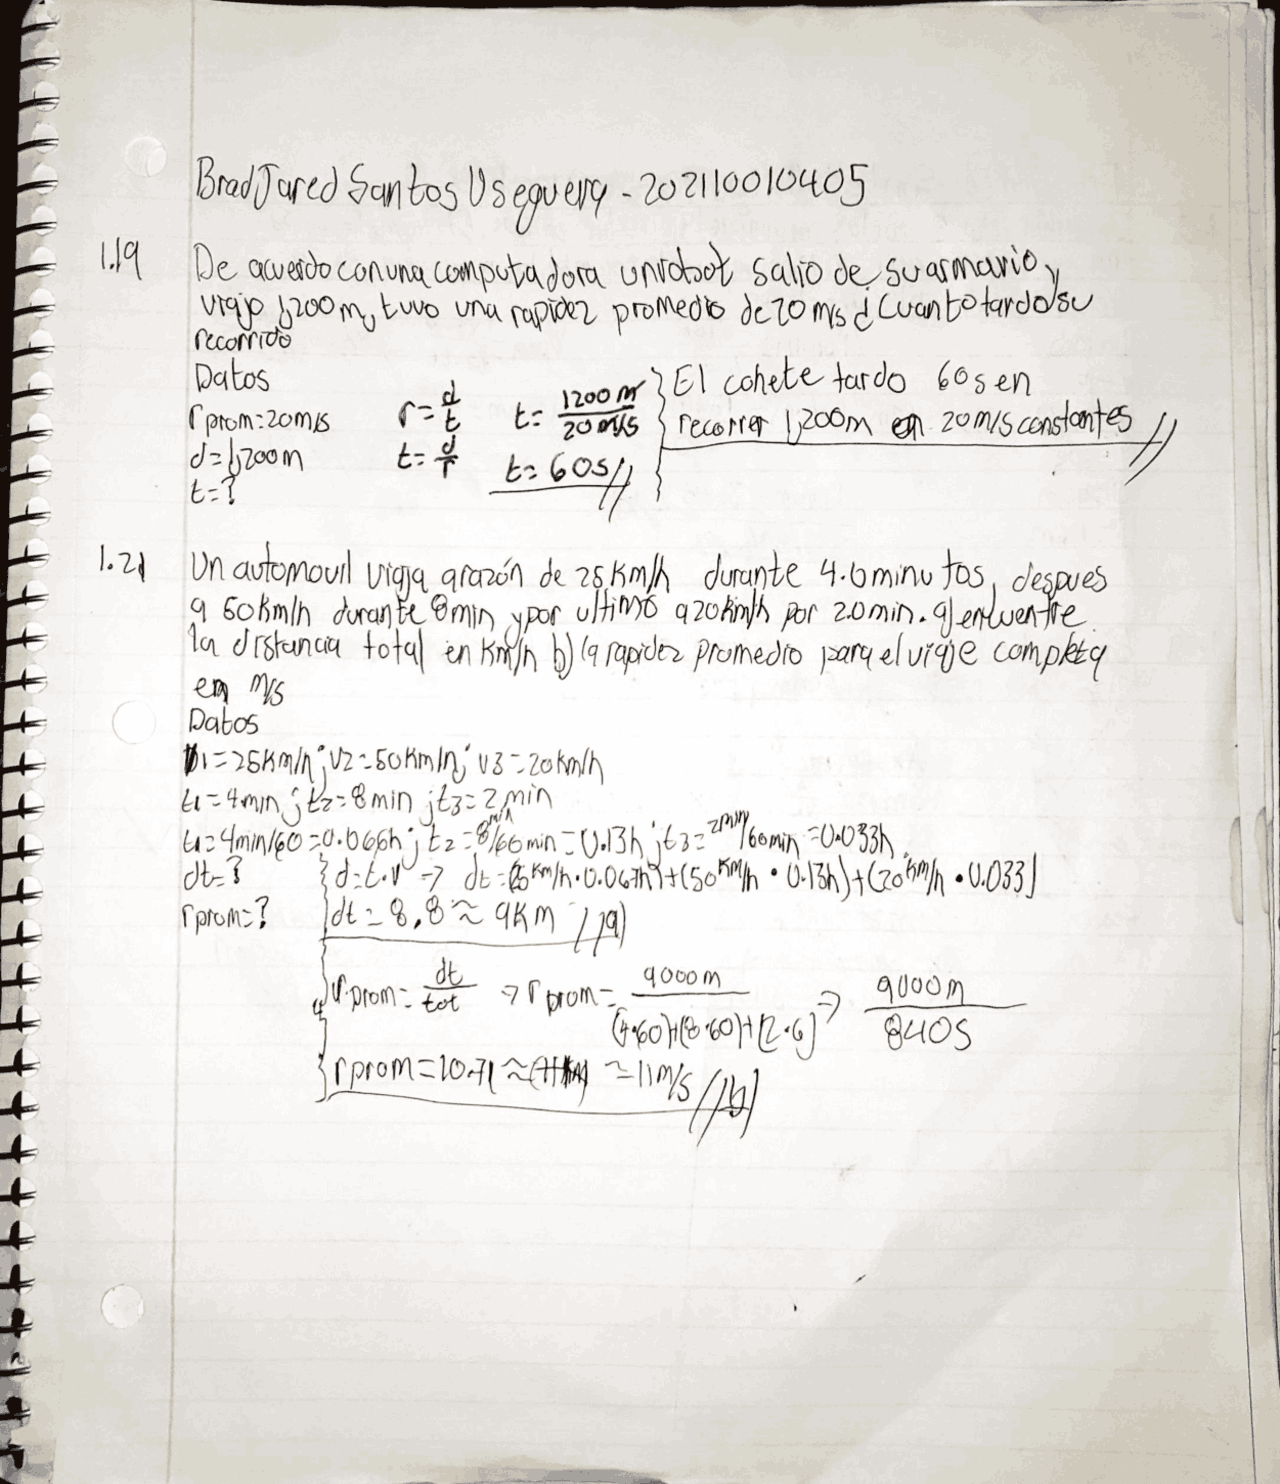 Brad Jared Santos Useguera - 202110010405
1.19 De acuerdo con una computadora un robot salio de su armario y
viajo 1,200 m, tuvo una rapidez promedio de 20 m/s ¿Cuanto tardo su
recorrido
Datos
r prom=20m/s r=d/t t=1200 m/20 m/s } El cohete tardo 60s en
d=1,200m t=d/r t=60s// recorrer 1,200m en 20 m/s constantes //
t=?
1.21 Un automovil viaja a razón de 25 Km/h durante 4.0 minutos, despues
a 50 km/h durante 8 min y por ultimo a 20 km/h por 2.0 min. a) encuentre
la distancia total en Km/h b) la rapidez promedio para el viaje completa
en m/s
Datos
V1=25Km/h; V2=50Km/h; V3=20km/h
t1=4min; t2=8min; t3=2min
t1=4min/60=0.066h; t2=8min/60min=0.13h; t3=2min/60min=0.033h
dt=? { d=t.v → dt=(25Km/h•0.067h)+(50Km/h•0.13h)+(20Km/h•0.033)
r prom=? dt=8,8≈9Km //a)
r prom=dt/tot → r prom=9000m/(4•60)+(8•60)+(2•6) → 9000m/840s
r prom=10.71≈ ≈11m/s //b)